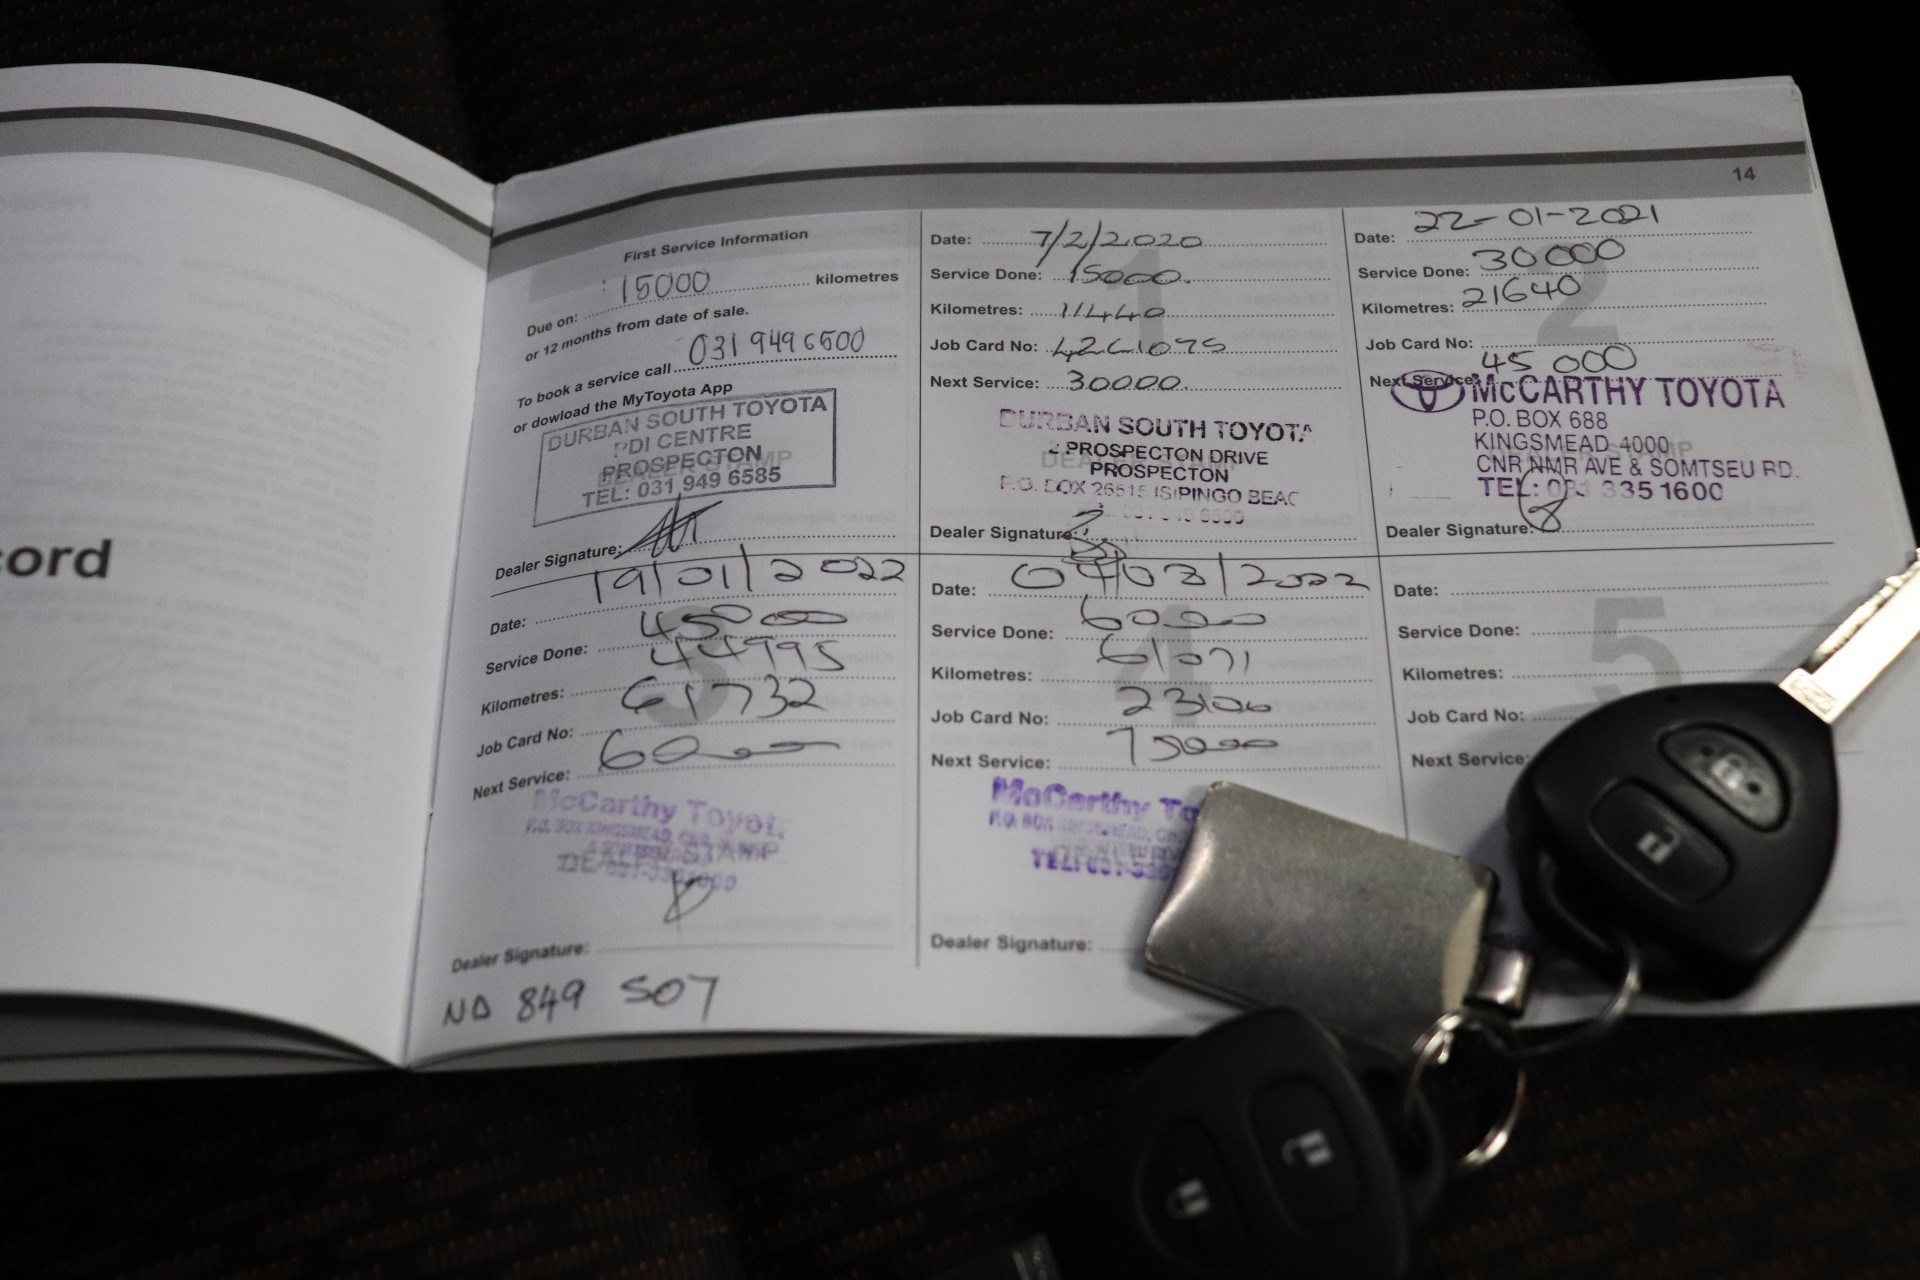 cord
14
First Service Information
Due on: 15000 kilometres
or 12 months from date of sale.
To book a service call 031 949 6500
or dowload the MyToyota App
DURBAN SOUTH TOYOTA
PDI CENTRE
PROSPECTON
TEL: 031 949 6585
Dealer Signature:
1
Date: 7/2/2020
Service Done: 15000.
Kilometres: 11440
Job Card No:
Next Service: 30000.
DURBAN SOUTH TOYOTA
2 PROSPECTON DRIVE
PROSPECTON
P.O. BOX 26515 ISIPINGO BEAC
DEALER STAMP
Dealer Signature:
2
Date: 22-01-2021
Service Done: 30000
Kilometres: 21640
Job Card No:
Next Service: 45 000
McCARTHY TOYOTA
P.O. BOX 688
KINGSMEAD 4000
CNR NMR AVE & SOMTSEU RD.
TEL: 031 335 1600
Dealer Signature:
3
Date: 19/01/2022
Service Done: 45000
Kilometres: 44995
Job Card No: 61732
Next Service: 60000
McCarthy Toyota
DEALER STAMP
Dealer Signature:
ND 849 507
4
Date: 04/03/2022
Service Done: 60000
Kilometres: 61071
Job Card No: 23106
Next Service: 75000
McCarthy To
Dealer Signature:
5
Date:
Service Done:
Kilometres:
Job Card No:
Next Service: